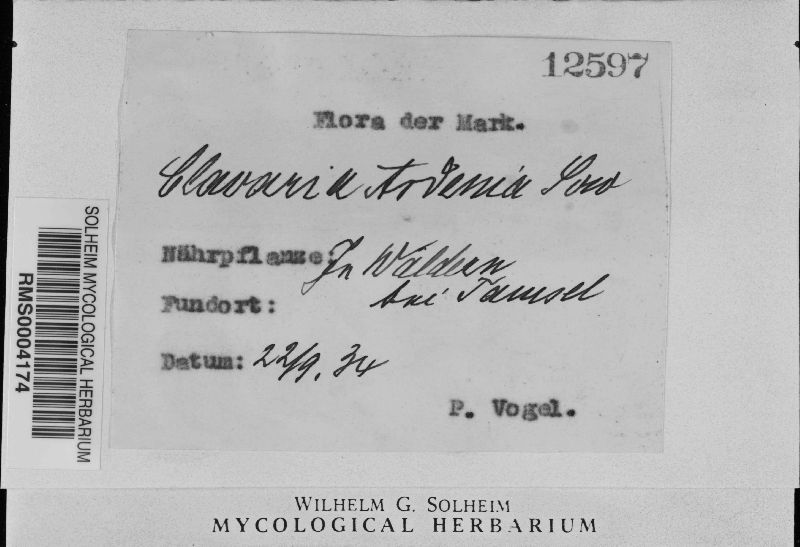 12597
Flora der Mark.
Clavaria Ardenia Sow
Nährpflanze: In Wäldern
Fundort: bei Tamsel
Datum: 22/9. 34
P. Vogel.
SOLHEIM MYCOLOGICAL HERBARIUM
RMS0004174
WILHELM G. SOLHEIM
MYCOLOGICAL HERBARIUM